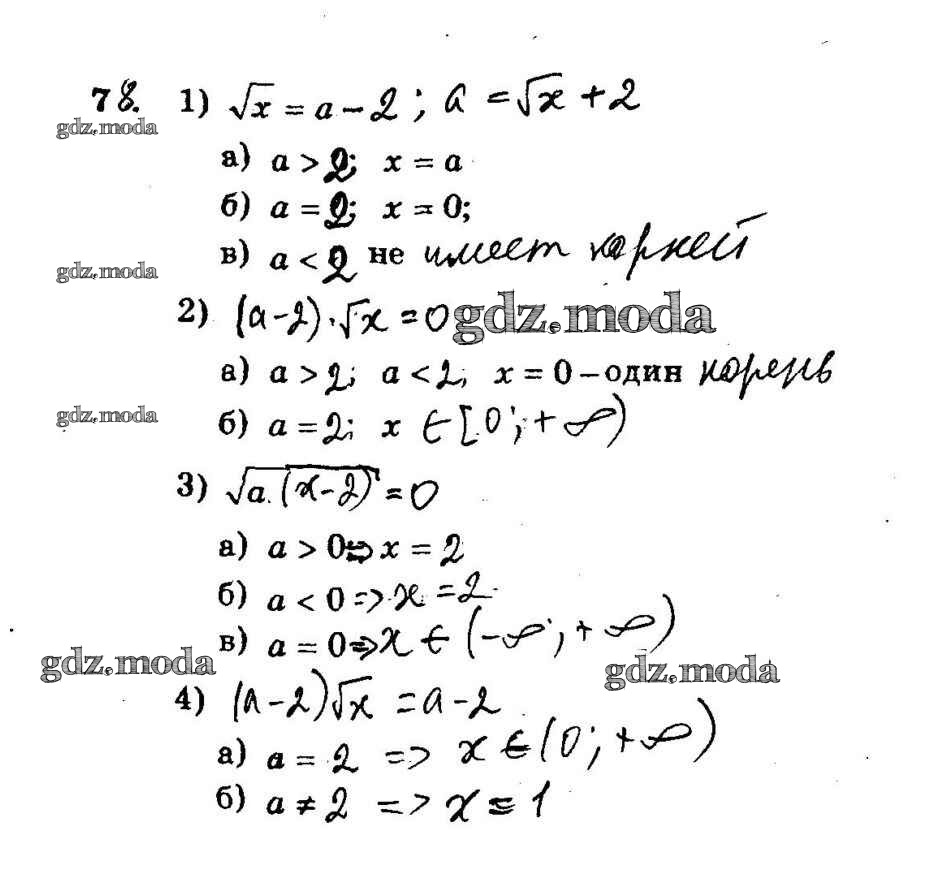 78. 1) √x = a - 2; a = √x + 2
gdz.moda
а) a > 2; x = a
б) a = 2; x = 0;
в) a < 2 не имеет корней
gdz.moda
2) (a-2)·√x = 0
gdz.moda
а) a > 2; a < 2; x = 0 – один корень
б) a = 2; x ∈ [0; +∞)
gdz.moda
3) √a·(x-2) = 0
а) a > 0 => x = 2
б) a < 0 => x = 2
в) a = 0 => x ∈ (-∞; +∞)
gdz.moda
gdz.moda
4) (a-2)√x = a-2
а) a = 2 => x ∈ (0; +∞)
б) a ≠ 2 => x = 1